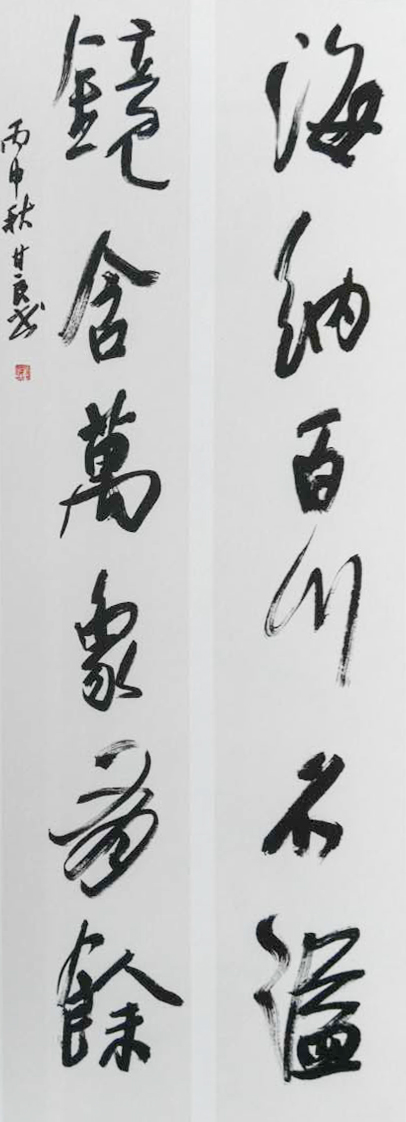 海纳百川不溢
鏡含萬象有餘
丙申秋甘良